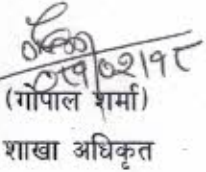 ०९१०२११८
(गोपाल शर्मा)
शाखा अधिकृत